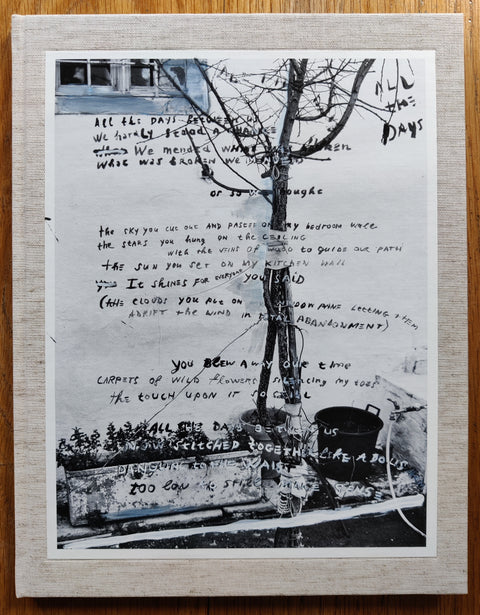 ALL the DAYS
All the DAYS BETWEEN US
We hardly stood A CHANCE
We mended what was broken
What was broken we
or so we thought
the sky you cut out and pasted on my bedroom wall
the stars you hung on the ceiling
with the veins of wood to guide our path
the sun you set on my kitchen wall
It shines for everyone you said
(the clouds you put on window pane letting them
adrift the wind in total abandonment)
you blew away our time
carpets of wild flowers silencing my toes
the touch upon it so
ALL the DAYS between us
stitched together like a
to the waist
too low to still make sense